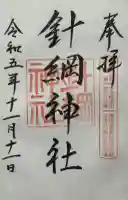 奉拝
針綱神社
令和五年十一月十一日